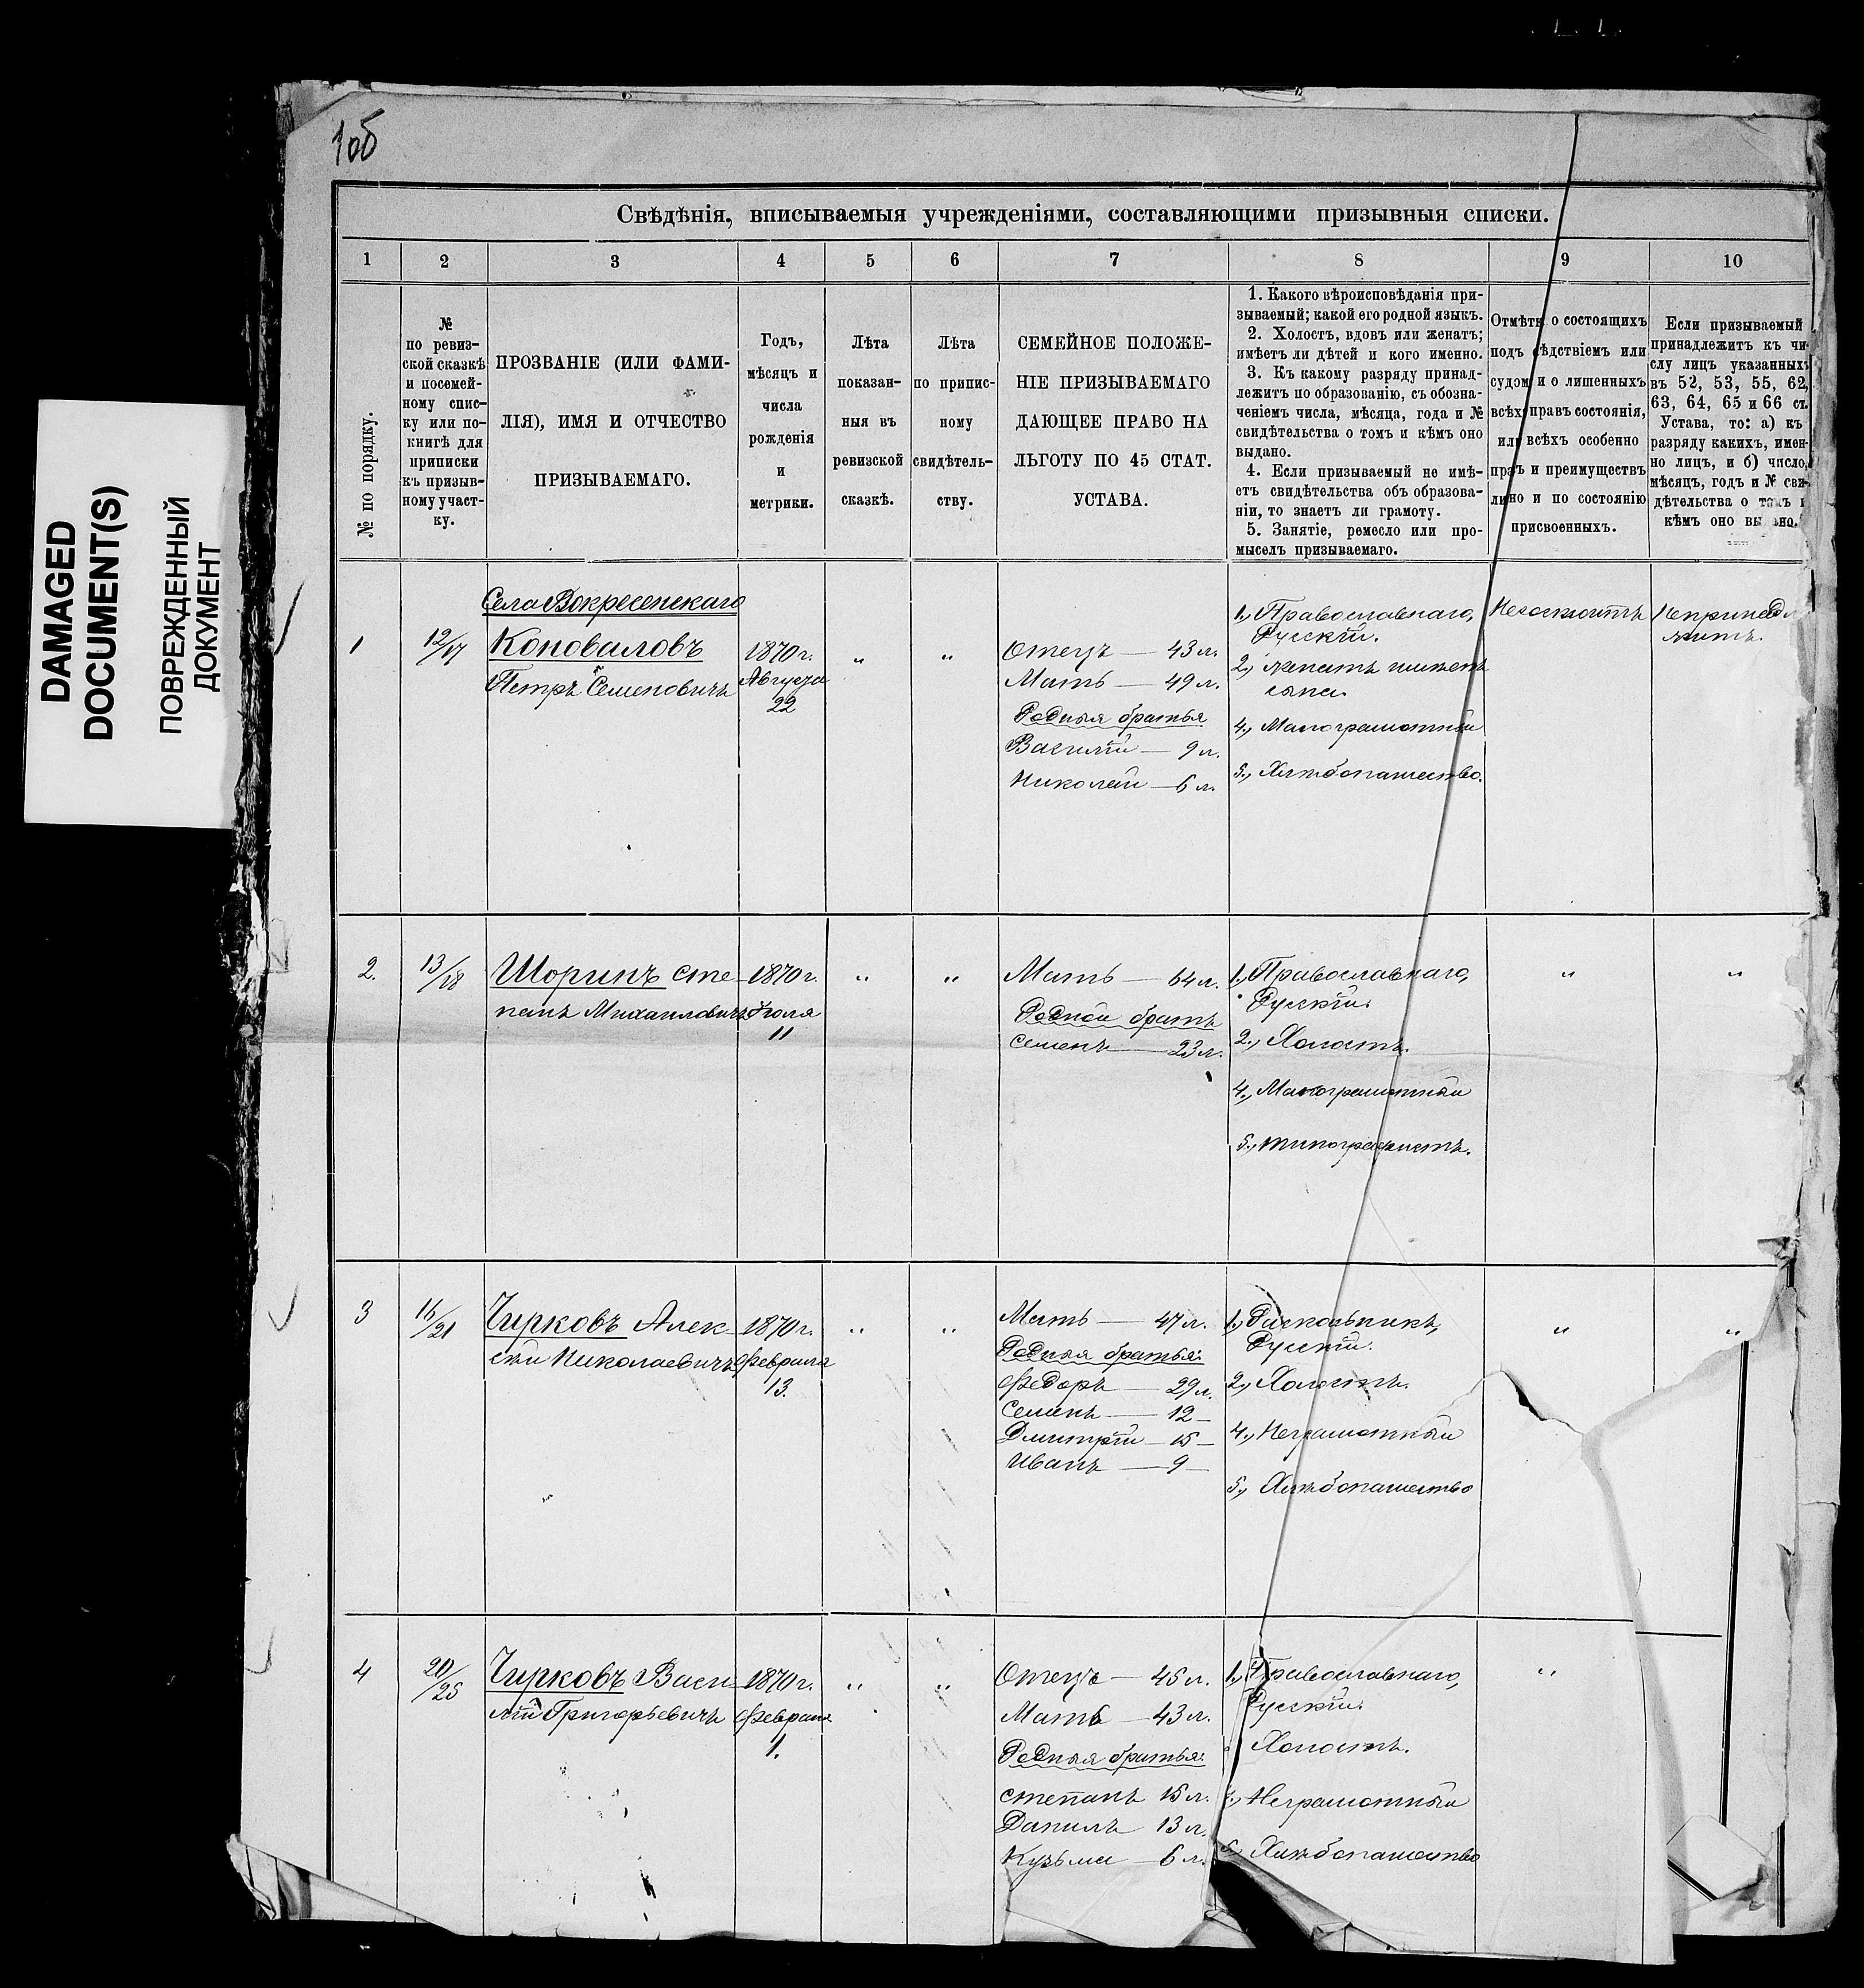 1об
DAMAGED
DOCUMENT(S)
ПОВРЕЖДЕННЫЙ
ДОКУМЕНТ
Свѣдѣнія, вписываемыя учрежденіями, составляющими призывныя списки.
1 2 3 4 5 6 7 8 9 10
№ по порядку.
№
по ревиз-
ской сказкѣ
и посемей-
ному спис-
ку или по
книгѣ для
приписки
къ призыв-
ному участ-
ку.
ПРОЗВАНІЕ (ИЛИ ФАМИ-
ЛІЯ), ИМЯ И ОТЧЕСТВО
ПРИЗЫВАЕМАГО.
Годъ,
мѣсяцъ и
числа
рожденія
и
метрики.
Лѣта
показан-
ныя въ
ревизской
сказкѣ.
Лѣта
по припис-
ному
свидѣтель-
ству.
СЕМЕЙНОЕ ПОЛОЖЕ-
НІЕ ПРИЗЫВАЕМАГО
ДАЮЩЕЕ ПРАВО НА
ЛЬГОТУ ПО 45 СТАТ.
УСТАВА.
1. Какого вѣроисповѣданія при-
зываемый; какой его родной языкъ.
2. Холостъ, вдовъ или женатъ;
имѣетъ ли дѣтей и кого именно.
3. Къ какому разряду принад-
лежитъ по образованію, съ обозна-
ченіемъ числа, мѣсяца, года и №
свидѣтельства о томъ и кѣмъ оно
выдано.
4. Если призываемый не имѣ-
етъ свидѣтельства объ образова-
ніи, то знаетъ ли грамоту.
5. Занятіе, ремесло или про-
мыселъ призываемаго.
Отмѣтк о состоящихъ
подъ слѣдствіемъ или
судом и о лишенныхъ
всѣх правъ состоянія,
или всѣхъ особенно
правъ и преимуществъ
лично и по состоянію
присвоенныхъ.
Если призываемый
принадлежитъ къ чи-
слу лицъ указанныхъ
въ 52, 53, 55, 62,
63, 64, 65 и 66 ст.
Устава, то: а) къ
разряду какихъ, имен-
но лицъ, и б) число,
мѣсяцъ, годъ и № сви-
дѣтельства о томъ и
кѣмъ оно выдано.
Села Вокресенскаго
1
12/17
Коноваловъ
Петръ Семеновичъ
1870 г.
Августа
22
„
„
Отецъ — 43 л.
Мать — 49 л.
Родныя братья
Василій — 9 л.
Николай — 6 л.
1., Православнаго,
Русскій.
2., женатъ имѣетъ
сына.
4., Малограмотный
5., Хлѣбопашество.
Несостоитъ
Непринадл
житъ.
2.
13/18
Шоринъ Сте-
панъ Михаиловичъ
1870 г.
Іюля
11
„
„
Мать — 64 л.
Родной братъ
Семенъ — 23 л.
1., Православнаго,
Русскій.
2., Холостъ.
4., Малограмотный
5., типографистъ.
„
„
3
16/21
Чирковъ Алек-
сѣй Николаевичъ
1870 г.
Февраля
13.
„
„
Мать — 47 л.
Родныя братья:
Федоръ — 29 л.
Семенъ — 12 —
Дмитрій — 15 —
Иванъ — 9 —
1., Раскольникъ,
Русскій.
2., Холостъ.
4., Неграмотный
5., Хлѣбопашество
„
„
4
20/25
Чирковъ Васи-
лій Григорьевичъ
1870 г.
Февраля
1.
„
„
Отецъ — 45 л.
Мать — 43 л.
Родныя братья:
Степанъ 15 л.
Данилъ 13 л.
Кузьма — 6 л.
1., Православнаго,
Русскій.
Холостъ.
Неграмотный
Хлѣбопашество
„